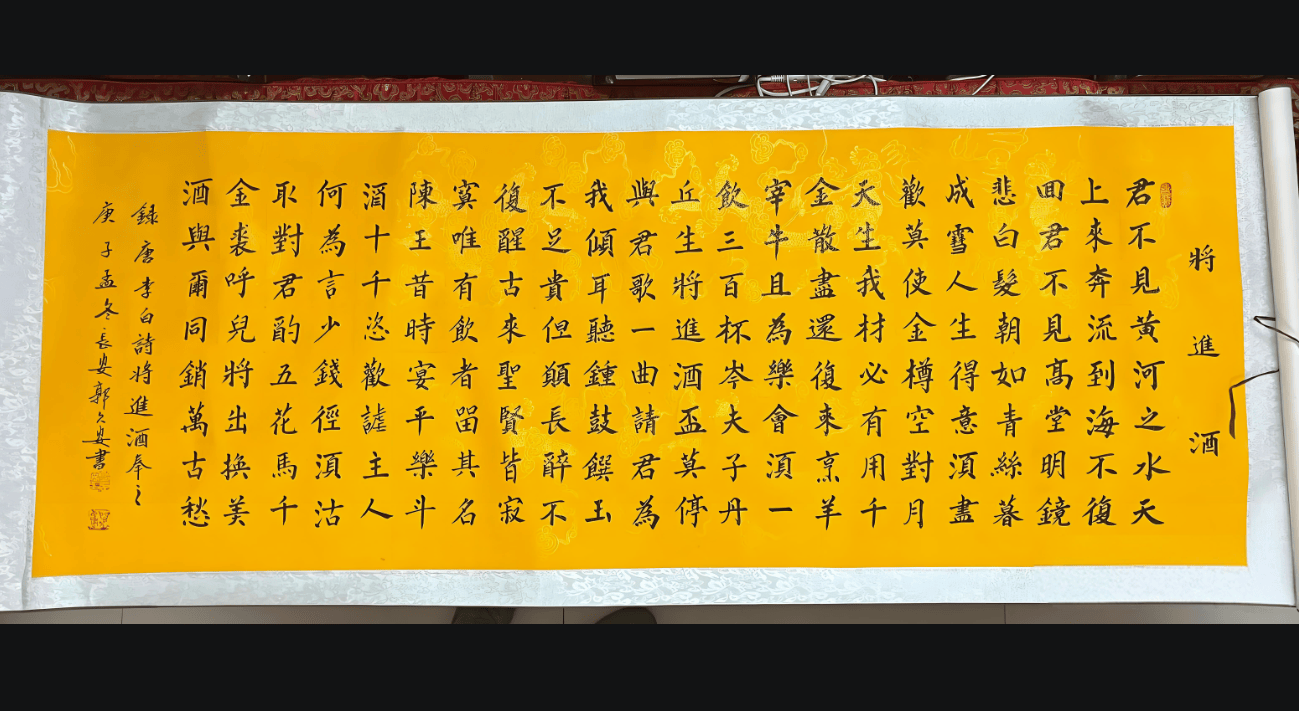 將進酒
君不見黃河之水天
上來奔流到海不復
囬君不見髙堂明鏡
悲白髮朝如青絲暮
成雪人生得意湏盡
歡莫使金樽空對月
天生我材必有用千
金散盡還復來烹羊
宰牛且為樂會湏一
飲三百杯岑夫子丹
丘生將進酒盃莫停
與君歌一曲請君為
我傾耳聽鍾鼓饌玉
不足貴但願長醉不
復醒古來聖賢皆寂
寞唯有飲者畱其名
陳王昔時宴平樂斗
酒十千恣歡謔主人
何為言少錢徑湏沽
取對君酌五花馬千
金裘呼兒將出換美
酒與爾同銷萬古愁
録唐李白詩將進酒奉之
庚子孟冬長安郭久安書